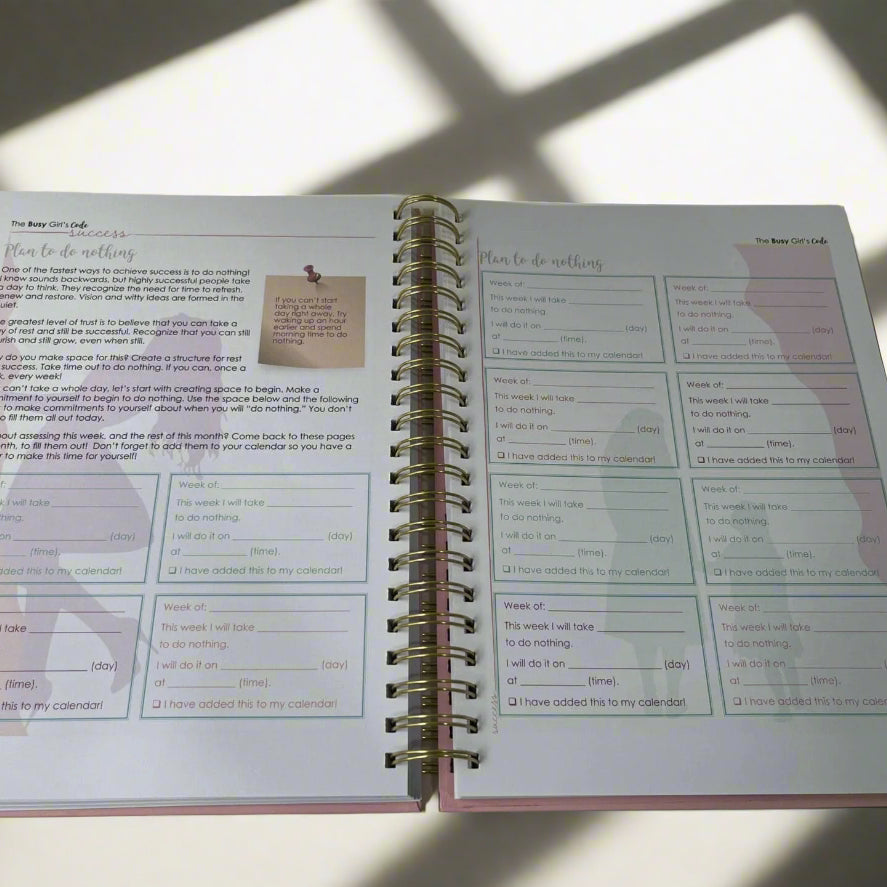 The Busy Girl's Code
success
Plan to do nothing
One of the fastest ways to achieve success is to do nothing!
know sounds backwards, but highly successful people take
a day to think. They recognize the need for time to refresh,
renew and restore. Vision and witty ideas are formed in the
greatest level of trust is to believe that you can take a
of rest and still be successful. Recognize that you can still
and still grow, even when still.
do you make space for this? Create a structure for rest
success. Take time out to do nothing. If you can, once a
every week!
can't take a whole day, let's start with creating space to begin. Make a
to yourself to begin to do nothing. Use the space below and the following
to make commitments to yourself about when you will "do nothing." You don't
fill them all out today.
assessing this week, and the rest of this month? Come back to these pages
to fill them out! Don't forget to add them to your calendar so you have a
to make this time for yourself!
If you can't start
taking a whole
day right away. Try
waking up an hour
earlier and spend
morning time to do
nothing.
I will take
(day)
(time).
this to my calendar!
Week of:
This week I will take
to do nothing.
I will do it on (day)
at (time).
I have added this to my calendar!
take
(day)
(time).
this to my calendar!
Week of:
This week I will take
to do nothing.
I will do it on (day)
at (time).
I have added this to my calendar!
The Busy Girl's Code
Plan to do nothing
Week of:
This week I will take
to do nothing.
I will do it on (day)
at (time).
I have added this to my calendar!
Week of:
This week I will take
to do nothing.
I will do it on (day)
at (time).
I have added this to my calendar!
Week of:
This week I will take
to do nothing.
I will do it on (day)
at (time).
I have added this to my calendar!
Week of:
This week I will take
to do nothing.
I will do it on (day)
at (time).
I have added this to my calendar!
Week of:
This week I will take
to do nothing.
I will do it on (day)
at (time).
I have added this to my calendar!
Week of:
This week I will take
to do nothing.
I will do it on (day)
at (time).
I have added this to my calendar!
Week of:
This week I will take
to do nothing.
I will do it on (day)
at (time).
I have added this to my calendar!
Week of:
This week I will take
to do nothing.
I will do it on
at (time).
I have added this to my calendar!
success